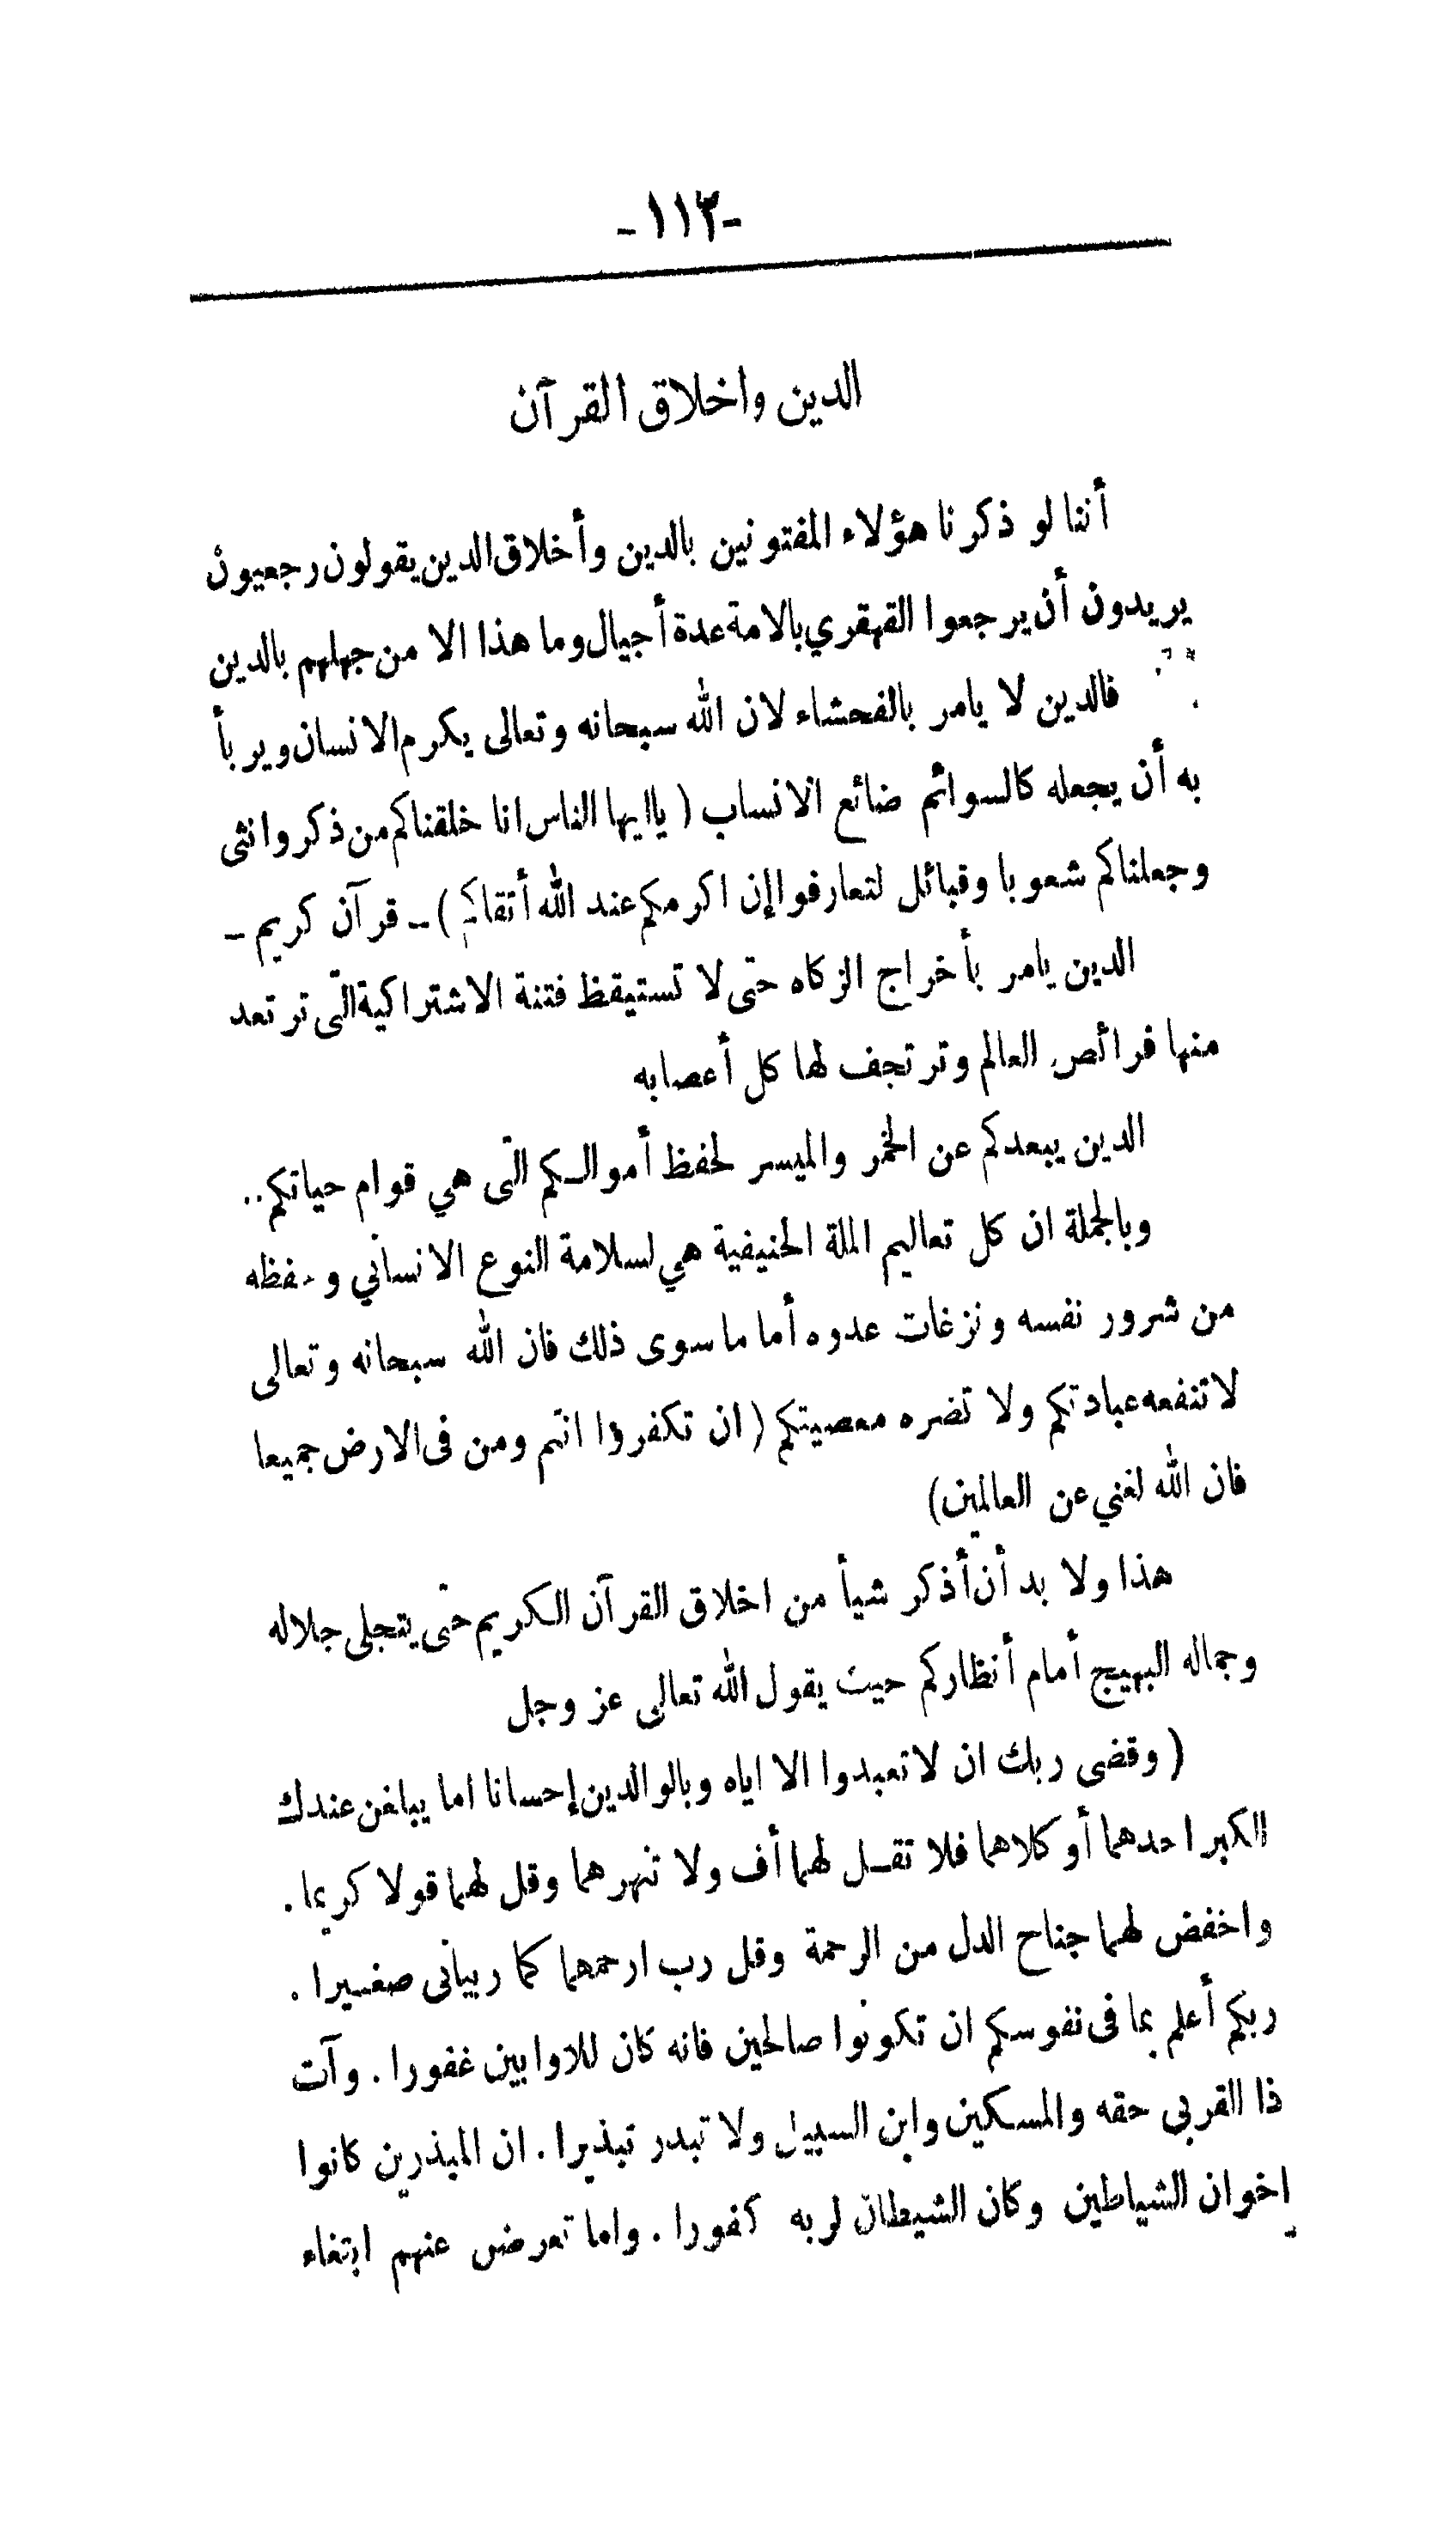 -١١٣-
الدين واخلاق القرآن
أننا لو ذكرنا هؤلاء المفتونين بالدين وأخلاق الدين يقولون رجعيون
يريدون أن يرجعوا القهقري بالامة عدة أجيال وما هذا الا من جهلهم بالدين
فالدين لا يامر بالفحشاء لان الله سبحانه وتعالى يكرم الانسان ويربأ
به أن يجعله كالسوائم ضائع الانساب ( ياايها الناس انا خلقناكم من ذكر وانثى
وجعلناكم شعوبا وقبائل لتعارفوا إن اكرمكم عند الله أتقاكم ) – قرآن كريم –
الدين يامر بأخراج الزكاه حتى لا تستيقظ فتنة الاشتراكية التى ترتعد
منها فرائص العالم وترتجف لها كل أعصابه
الدين يبعدكم عن الخمر والميسر لحفظ أموالكم التى هي قوام حياتكم..
وبالجملة ان كل تعاليم الملة الحنيفية هي لسلامة النوع الانساني وحفظه
من شرور نفسه ونزغات عدوه أما ما سوى ذلك فان الله سبحانه وتعالى
لاتنفعه عبادتكم ولا تضره معصيتكم ( ان تكفروا انتم ومن فى الارض جميعا
فان الله لغني عن العالمين)
هذا ولا بد أن أذكر شيأ من اخلاق القرآن الكريم حتى يتجلى جلاله
وجماله البهيج أمام أنظاركم حيث يقول الله تعالى عز وجل
( وقضى ربك ان لاتعبدوا الا اياه وبالوالدين إحسانا اما يبلغن عندك
الكبر احدهما أو كلاهما فلا تقل لهما أف ولا تنهرهما وقل لهما قولا كريما .
واخفض لهما جناح الدل من الرحمة وقل رب ارحمهما كما ربيانى صغيرا .
ربكم أعلم بما فى نفوسكم ان تكونوا صالحين فانه كان للاوابين غفورا . وآت
ذا القربى حقه والمسكين وابن السبيل ولا تبدر تبذيرا . ان المبذرين كانوا
إخوان الشياطين وكان الشيطان لربه كفورا . واما تعرضن عنهم ابتغاء